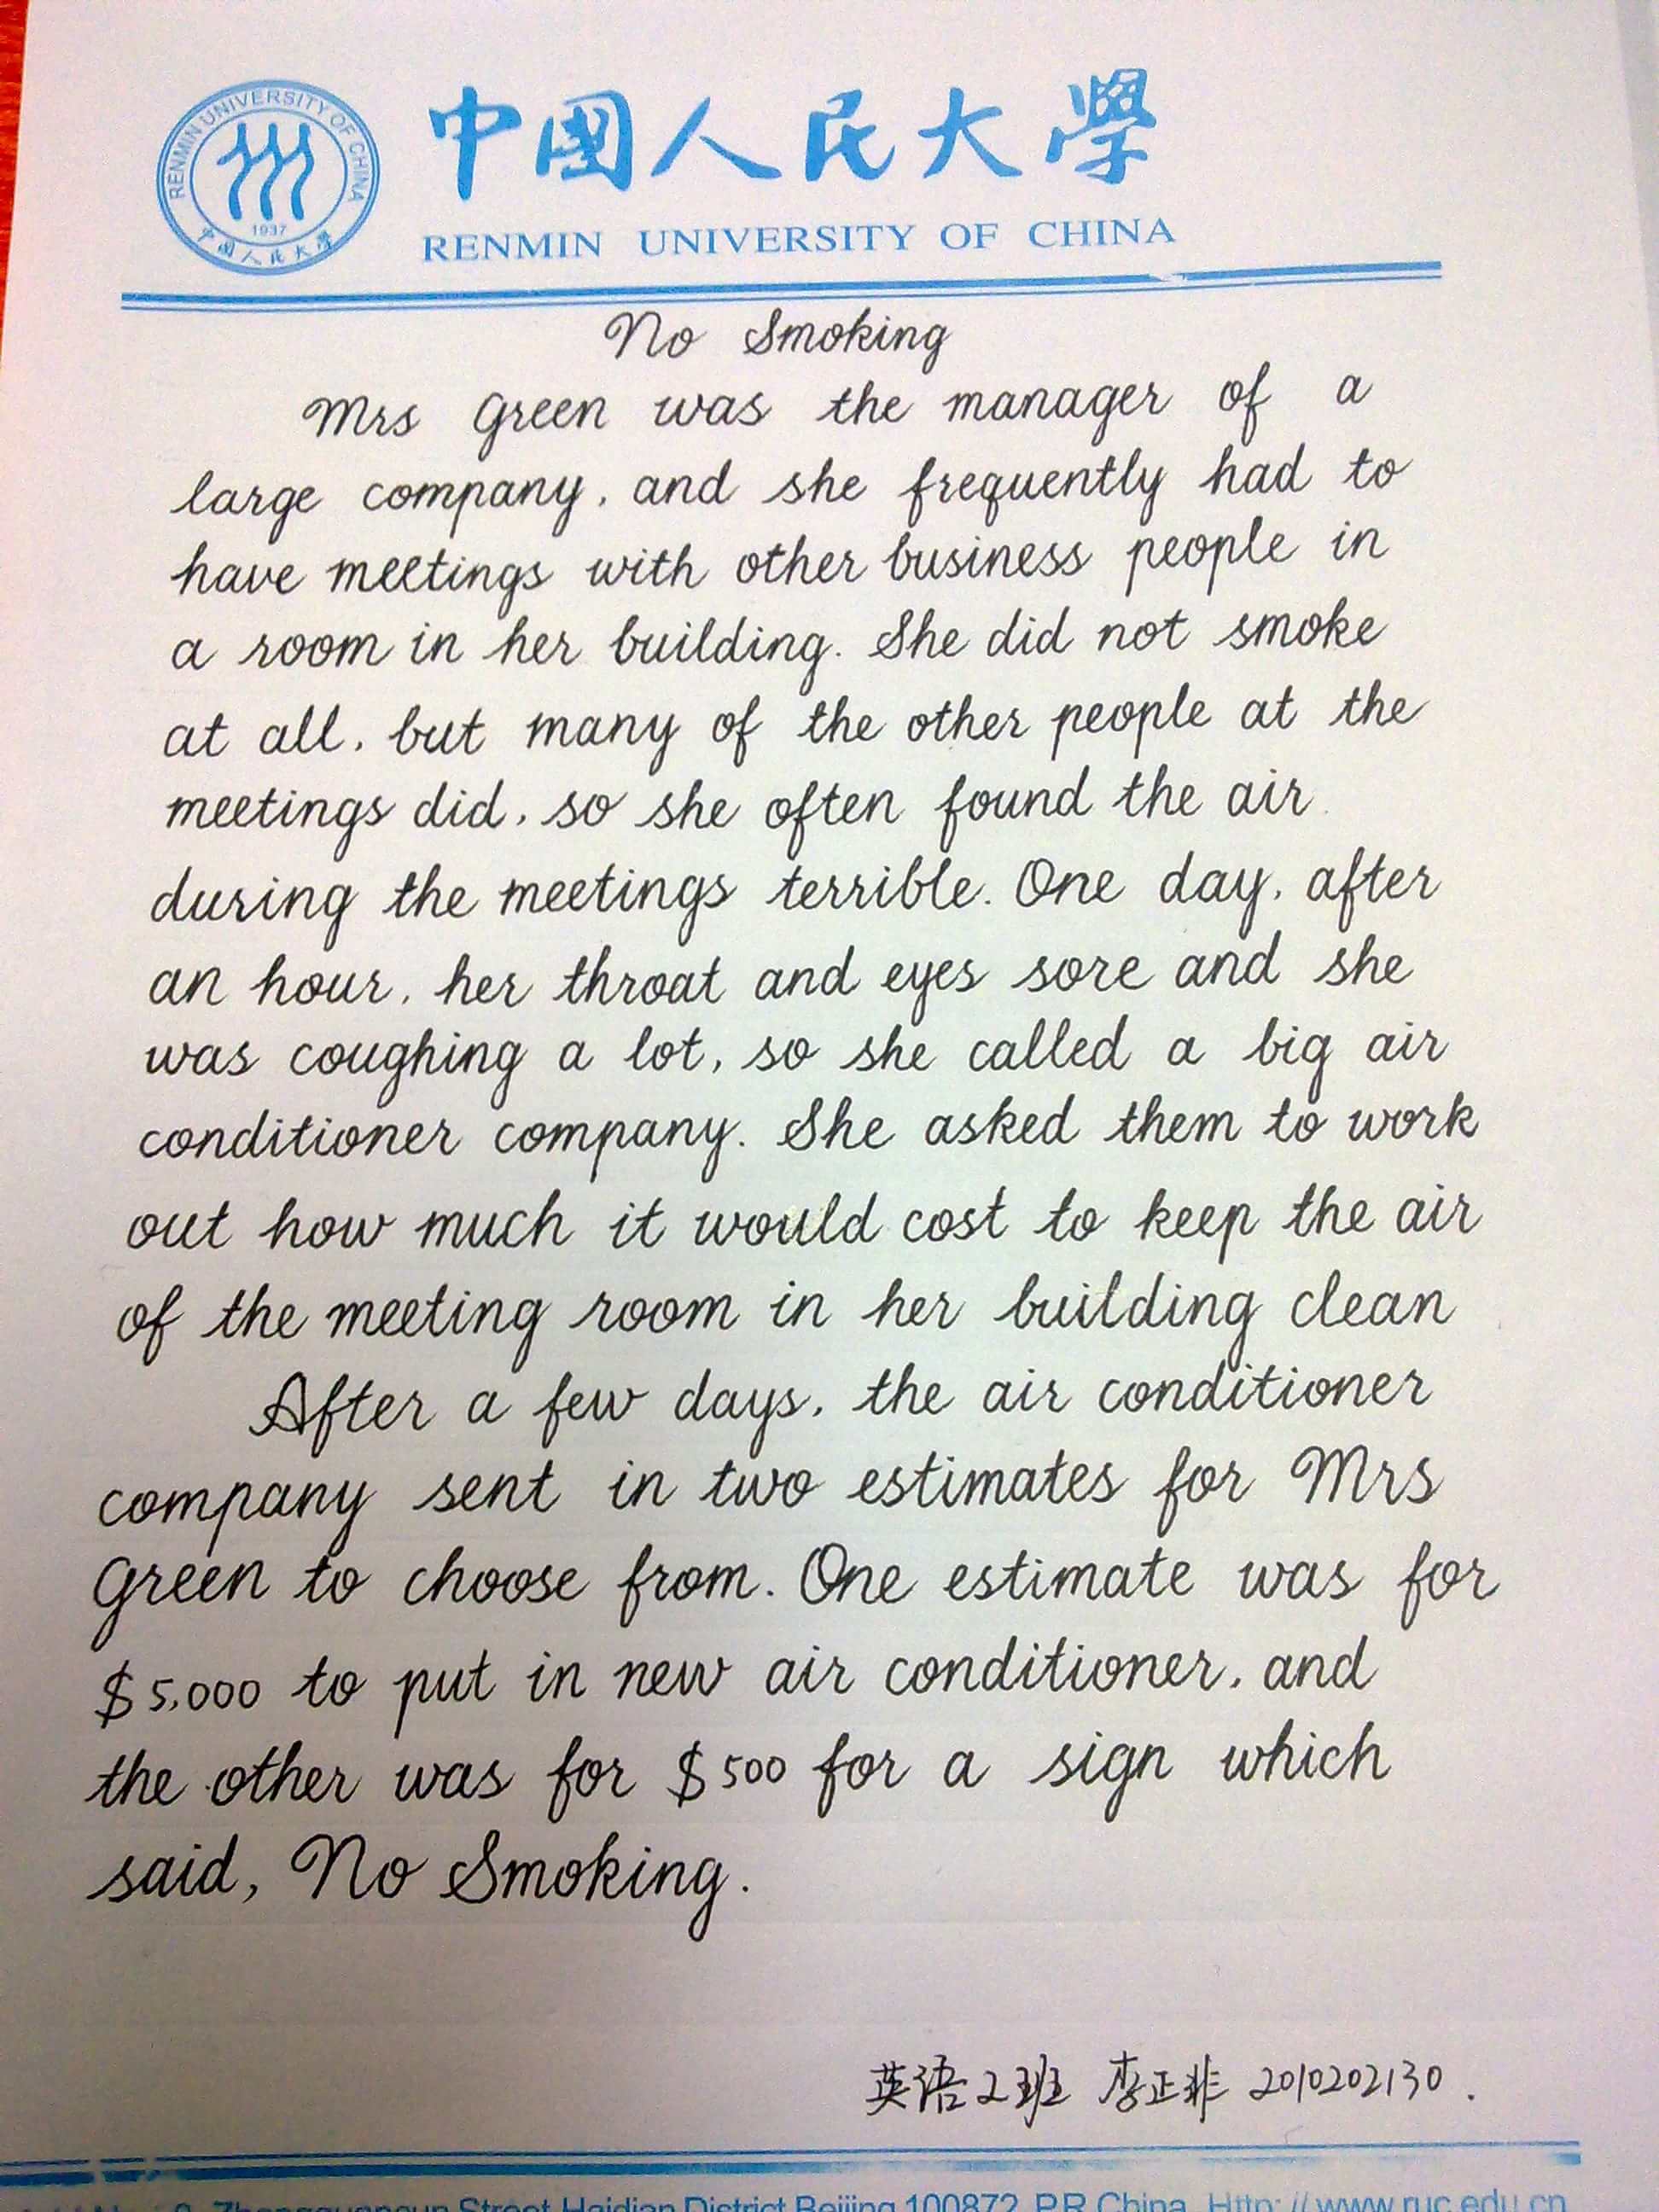 RENMIN UNIVERSITY OF CHINA
1937
中国人民大学
中國人民大學
RENMIN UNIVERSITY OF CHINA
No Smoking
Mrs Green was the manager of a
large company, and she frequently had to
have meetings with other business people in
a room in her building. She did not smoke
at all, but many of the other people at the
meetings did, so she often found the air
during the meetings terrible. One day, after
an hour, her throat and eyes sore and she
was coughing a lot, so she called a big air
conditioner company. She asked them to work
out how much it would cost to keep the air
of the meeting room in her building clean
After a few days, the air conditioner
company sent in two estimates for Mrs
Green to choose from. One estimate was for
$5,000 to put in new air conditioner, and
the other was for $500 for a sign which
said, No Smoking.
英语2班 李正非 2010202130.
Street Haidian District Beijing 100872 P.R.China Http://www.ruc.edu.cn